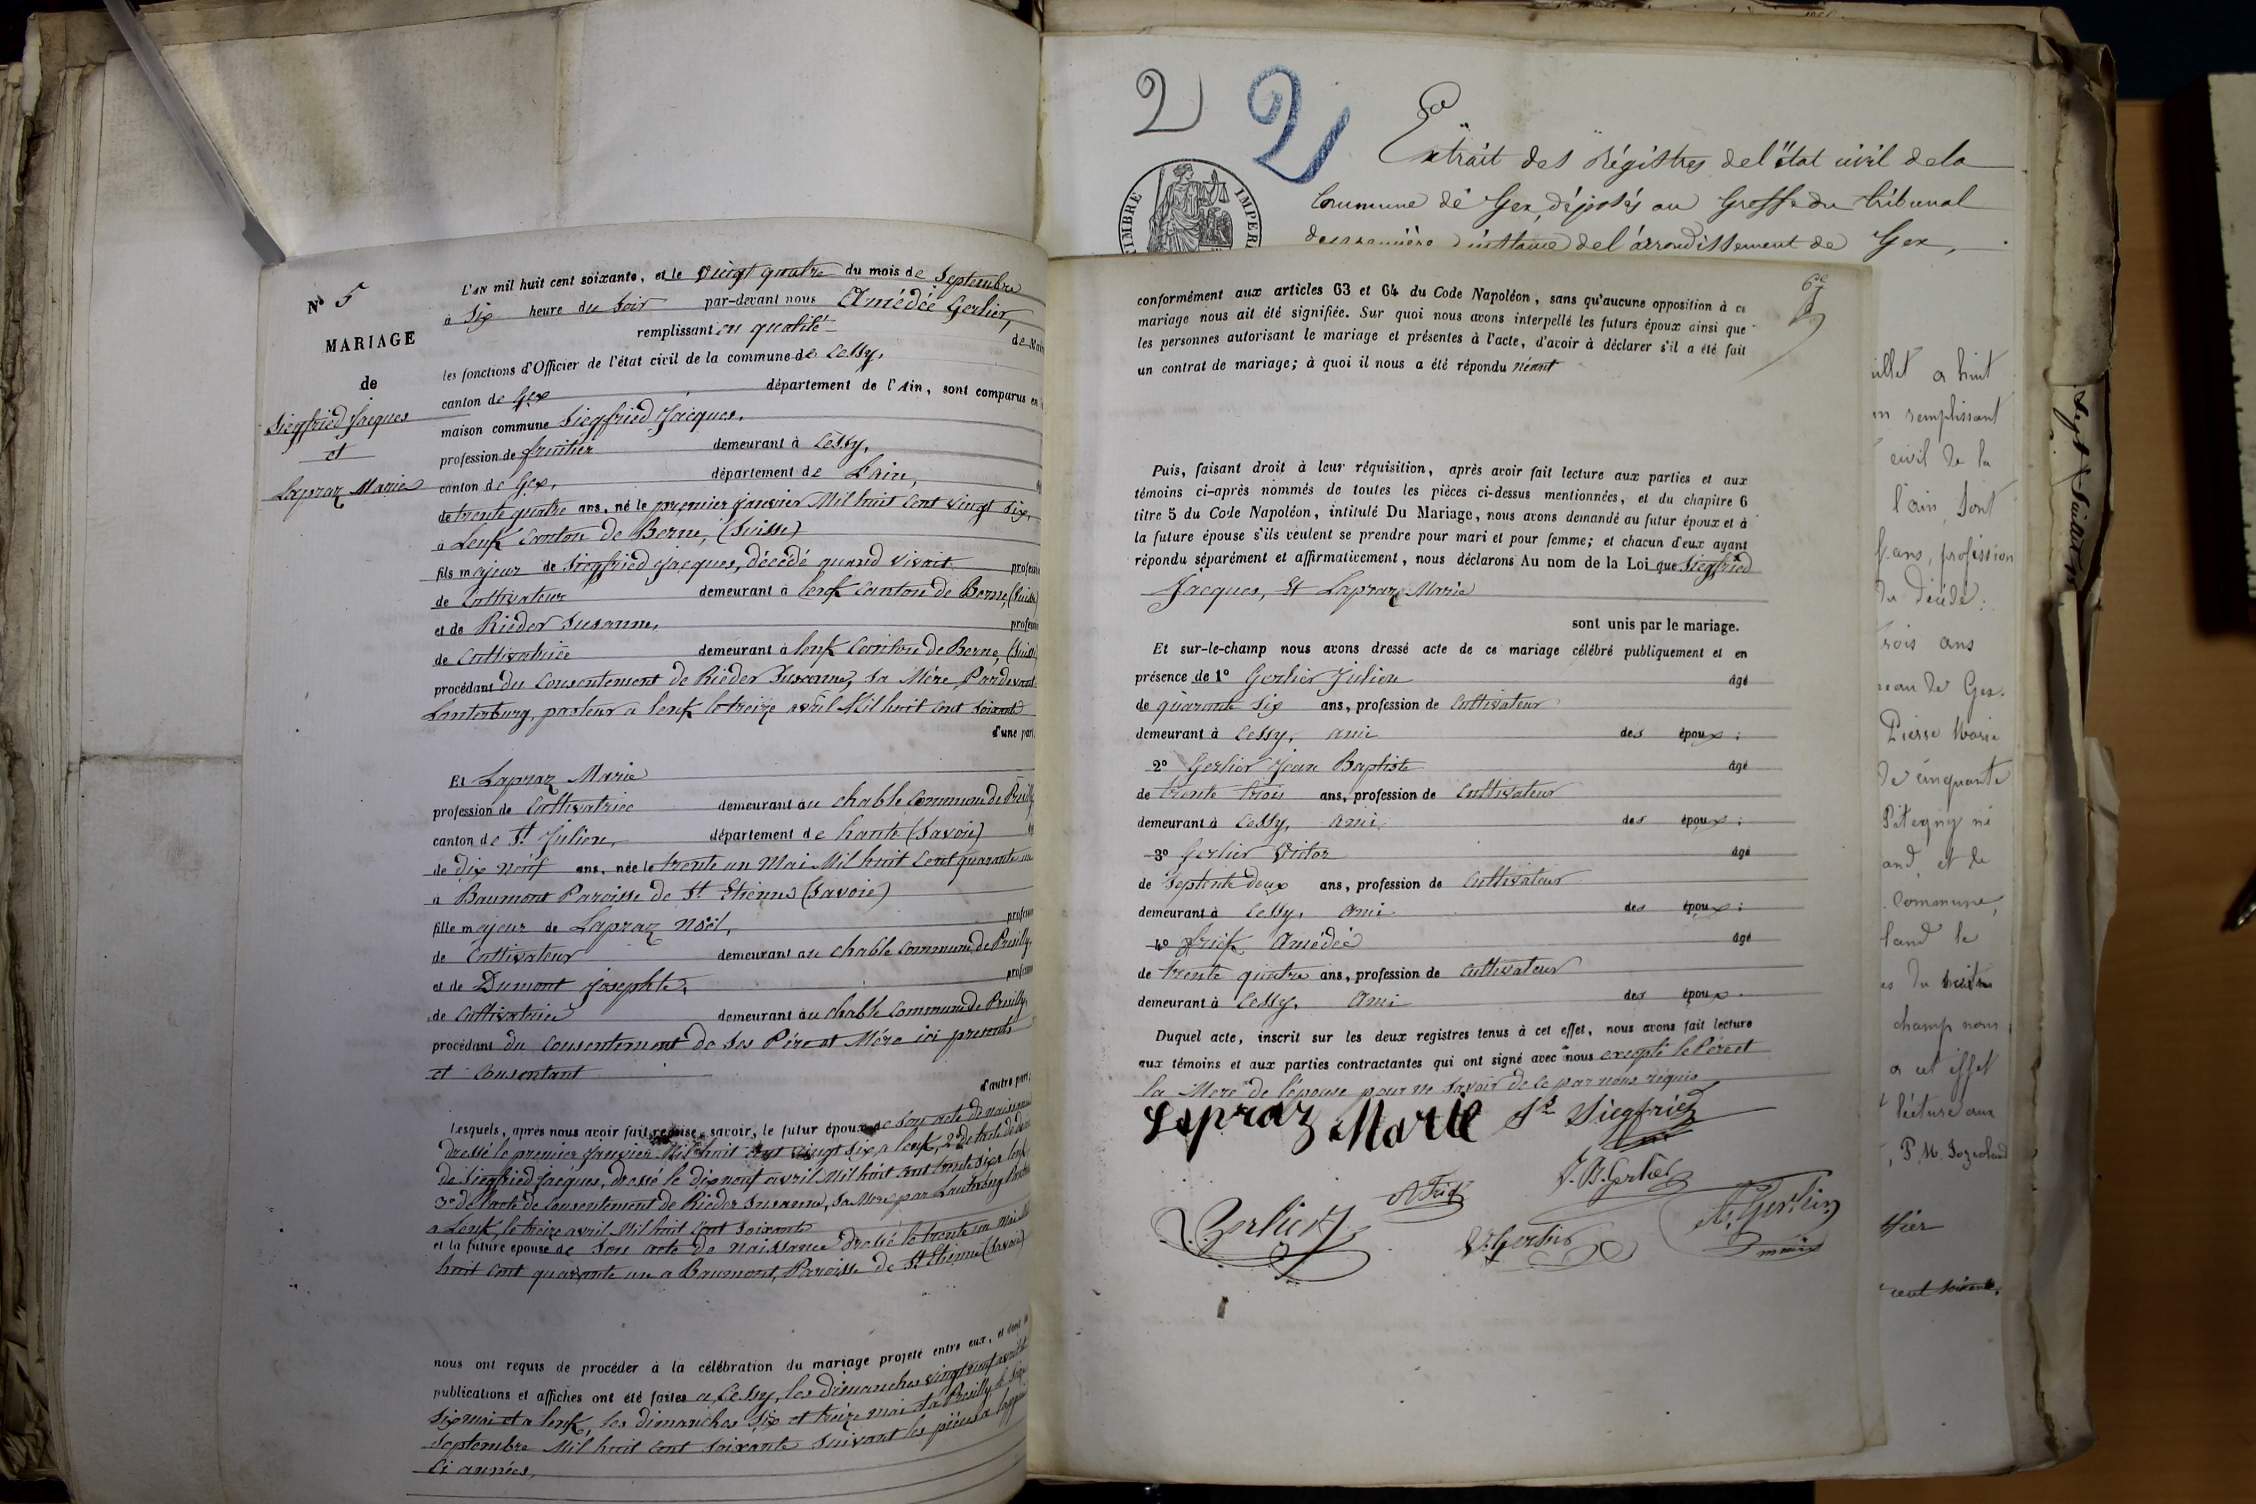 N° 5
MARIAGE
de
Siegfried Jacques
et
Lapraz Marie
L'AN mil huit cent soixante, et le vingt quatre du mois de Septembre
à Six heure du Soir par-devant nous Amédée Gerlier,
remplissant en qualité de Maire
les fonctions d'Officier de l'état civil de la commune de Cessy,
canton de Gex département de l'Ain, sont comparus en
maison commune Siegfried Jacques,
profession de fruitier demeurant à Cessy,
canton de Gex, département de Lain,
de trente quatre ans, né le premier janvier Mil huit Cent vingt Six,
à Lenk Canton de Berne, (Suisse)
fils majeur de Siegfried Jacques, décédé quand vivait profession
de Cultivateur demeurant à lenk Canton de Berne, (Suisse)
et de Rieder Susanne, profession
de Cultivatrice demeurant à lenk Canton de Berne, (Suisse)
procédant du Consentement de Rieder Susanne, sa Mère, Pardevant
Lauterburg, pasteur a lenk le treize avril Mil huit Cent Soixante
d'une part,
Et Lapraz Marie
profession de Cultivatrice demeurant au chable Commune de
canton de St Julien, département de haute (Savoie)
de dix neuf ans, née le trente un Mai Mil huit Cent quarante un
à Baumont Paroisse de St Etienne (Savoie)
fille majeur de Lapraz Noël, profession
de Cultivateur demeurant au chable Commune de
et de Dumont Josephte, profession
de Cultivatrice demeurant au chable Commune de
procédant du Consentement de Ses Père et Mère ici présents
et Consentant
d'autre part;
Lesquels, après nous avoir fait remise, savoir, le futur époux de Son acte de naissance
dressé le premier Janvier Mil huit Cent vingt Six a lenk, 2° de l'acte de
de Siegfried Jacques, dressé le dix neuf avril Mil huit Cent trente six a lenk
3° de l'acte de Consentement de Rieder Susanne, Sa Mère par Lauterburg
a Lenk, le treize avril Mil huit Cent Soixante
et la future épouse de Son acte de naissance dressé le trente un mai Mil
huit Cent quarante un a Baumont, Paroisse de St Etienne (Savoie)
nous ont requis de procéder à la célébration du mariage projeté entre eux, et dont les
publications et affiches ont été faites a Cessy, les dimanches vingt neuf avril et
Six mai et a lenk, les dimanches Six et treize mai et a
Septembre Mil huit Cent Soixante Suivant les pièces a
Ci années,
2 2
Extrait des Régistres de l'état civil de la
Commune de Gex, déposés au Greffe du tribunal
de première instance de l'arrondissement de Gex,
TIMBRE IMPER
conformément aux articles 63 et 64 du Code Napoléon, sans qu'aucune opposition à ce
mariage nous ait été signifiée. Sur quoi nous avons interpellé les futurs époux ainsi que
les personnes autorisant le mariage et présentes à l'acte, d'avoir à déclarer s'il a été fait
un contrat de mariage; à quoi il nous a été répondu néant
Puis, faisant droit à leur réquisition, après avoir fait lecture aux parties et aux
témoins ci-après nommés de toutes les pièces ci-dessus mentionnées, et du chapitre 6
titre 5 du Code Napoléon, intitulé Du Mariage, nous avons demandé au futur époux et à
la future épouse s'ils veulent se prendre pour mari et pour femme; et chacun d'eux ayant
répondu séparément et affirmativement, nous déclarons Au nom de la Loi que Siegfried
Jacques, Et Lapraz Marie
sont unis par le mariage.
Et sur-le-champ nous avons dressé acte de ce mariage célébré publiquement et en
présence de 1° Gerlier Julien âgé
de quarante Six ans, profession de Cultivateur
demeurant à Cessy, ami des époux;
2° Gerlier Jean Baptiste âgé
de trente trois ans, profession de Cultivateur
demeurant à Cessy, ami des époux;
3° Gerlier Victor âgé
de Septente deux ans, profession de Cultivateur
demeurant à Cessy, ami des époux;
4° frick Amédée âgé
de trente quatre ans, profession de Cultivateur
demeurant à Cessy. Ami des époux.
Duquel acte, inscrit sur les deux registres tenus à cet effet, nous avons fait lecture
aux témoins et aux parties contractantes qui ont signé avec nous excepté le Père et
la Mère de l'épouse pour ne Savoir de ce par nous réquis
Lapraz Marie Siegfried
J. B. Gerlier
A Frick
Gerlier J
V. Gerlier
A. Gerlier
maire
juillet a huit
en remplissant
civil de la
l'ain, Sont
ans, profession
du décédé:
trois ans
Gex.
Pierre Marie
de cinquante
Pitegny né
and, et de
Commune,
land le
es du
champ nous
a cet effet
lecture aux
P. M.
cent soixante.